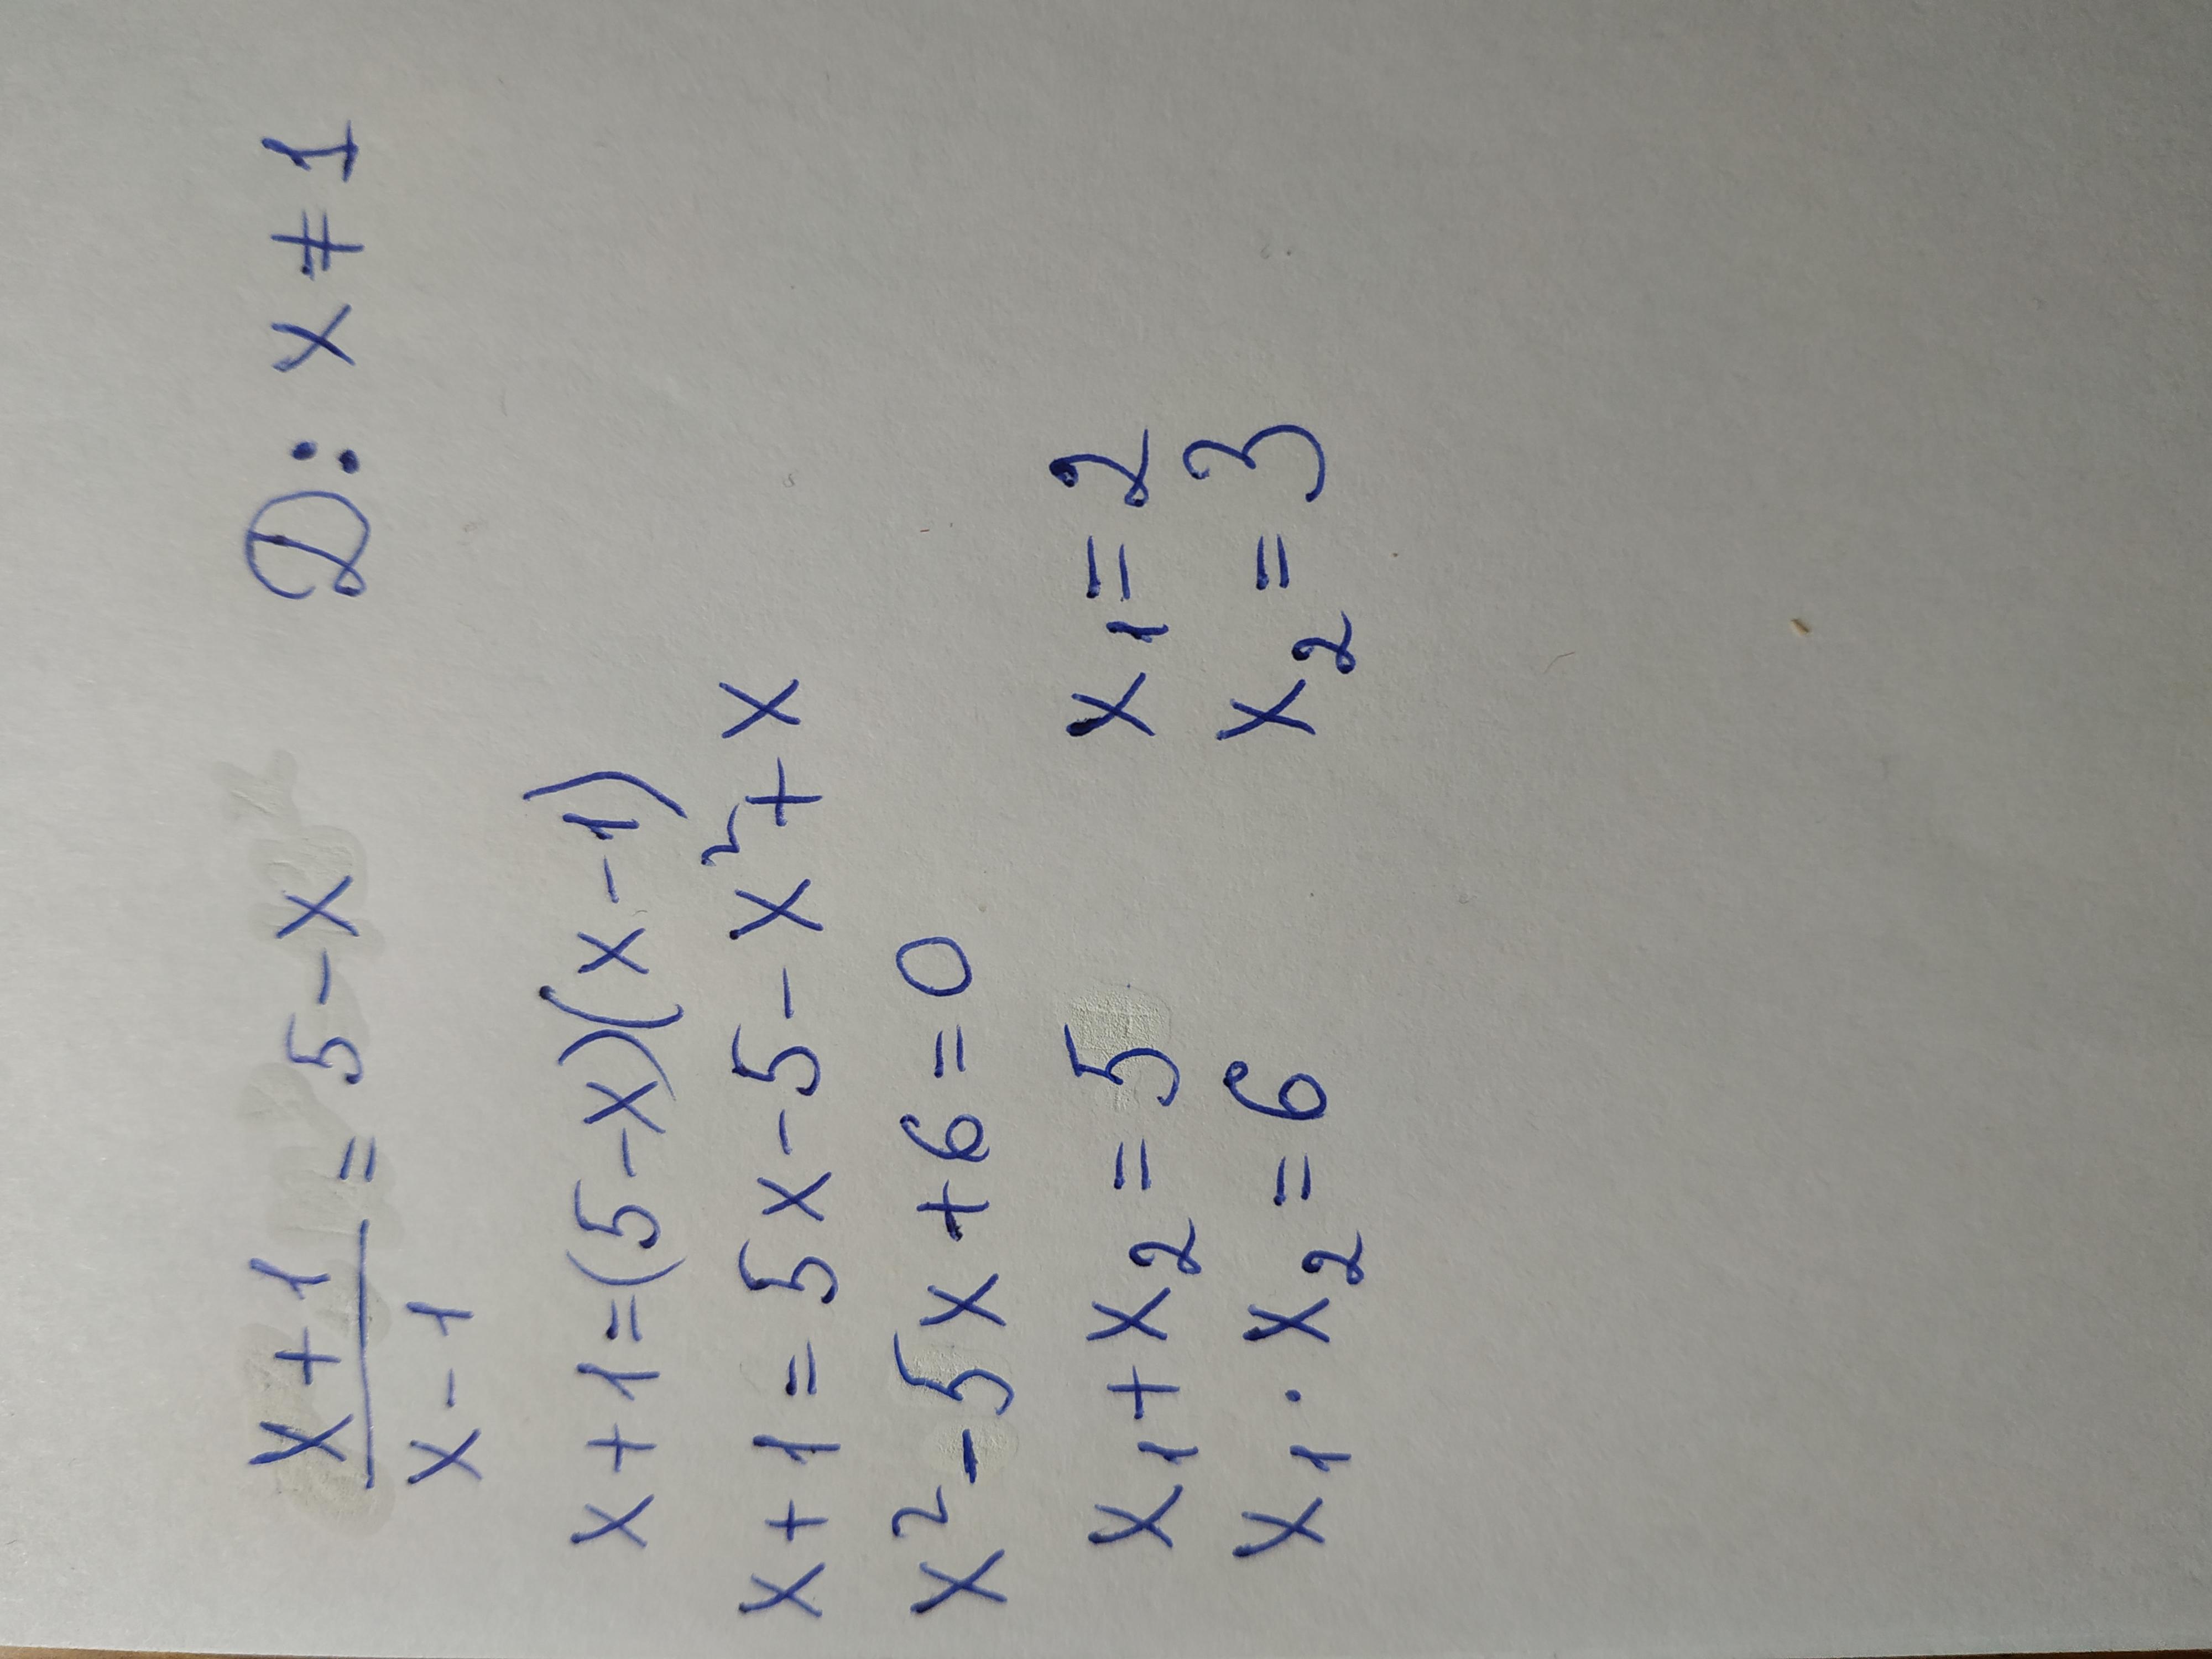 x+1/x-1 = 5-x D: x≠1
x+1=(5-x)(x-1)
x+1=5x-5-x²+x
x²-5x+6=0
x₁+x₂=5 x₁=2
x₁·x₂=6 x₂=3